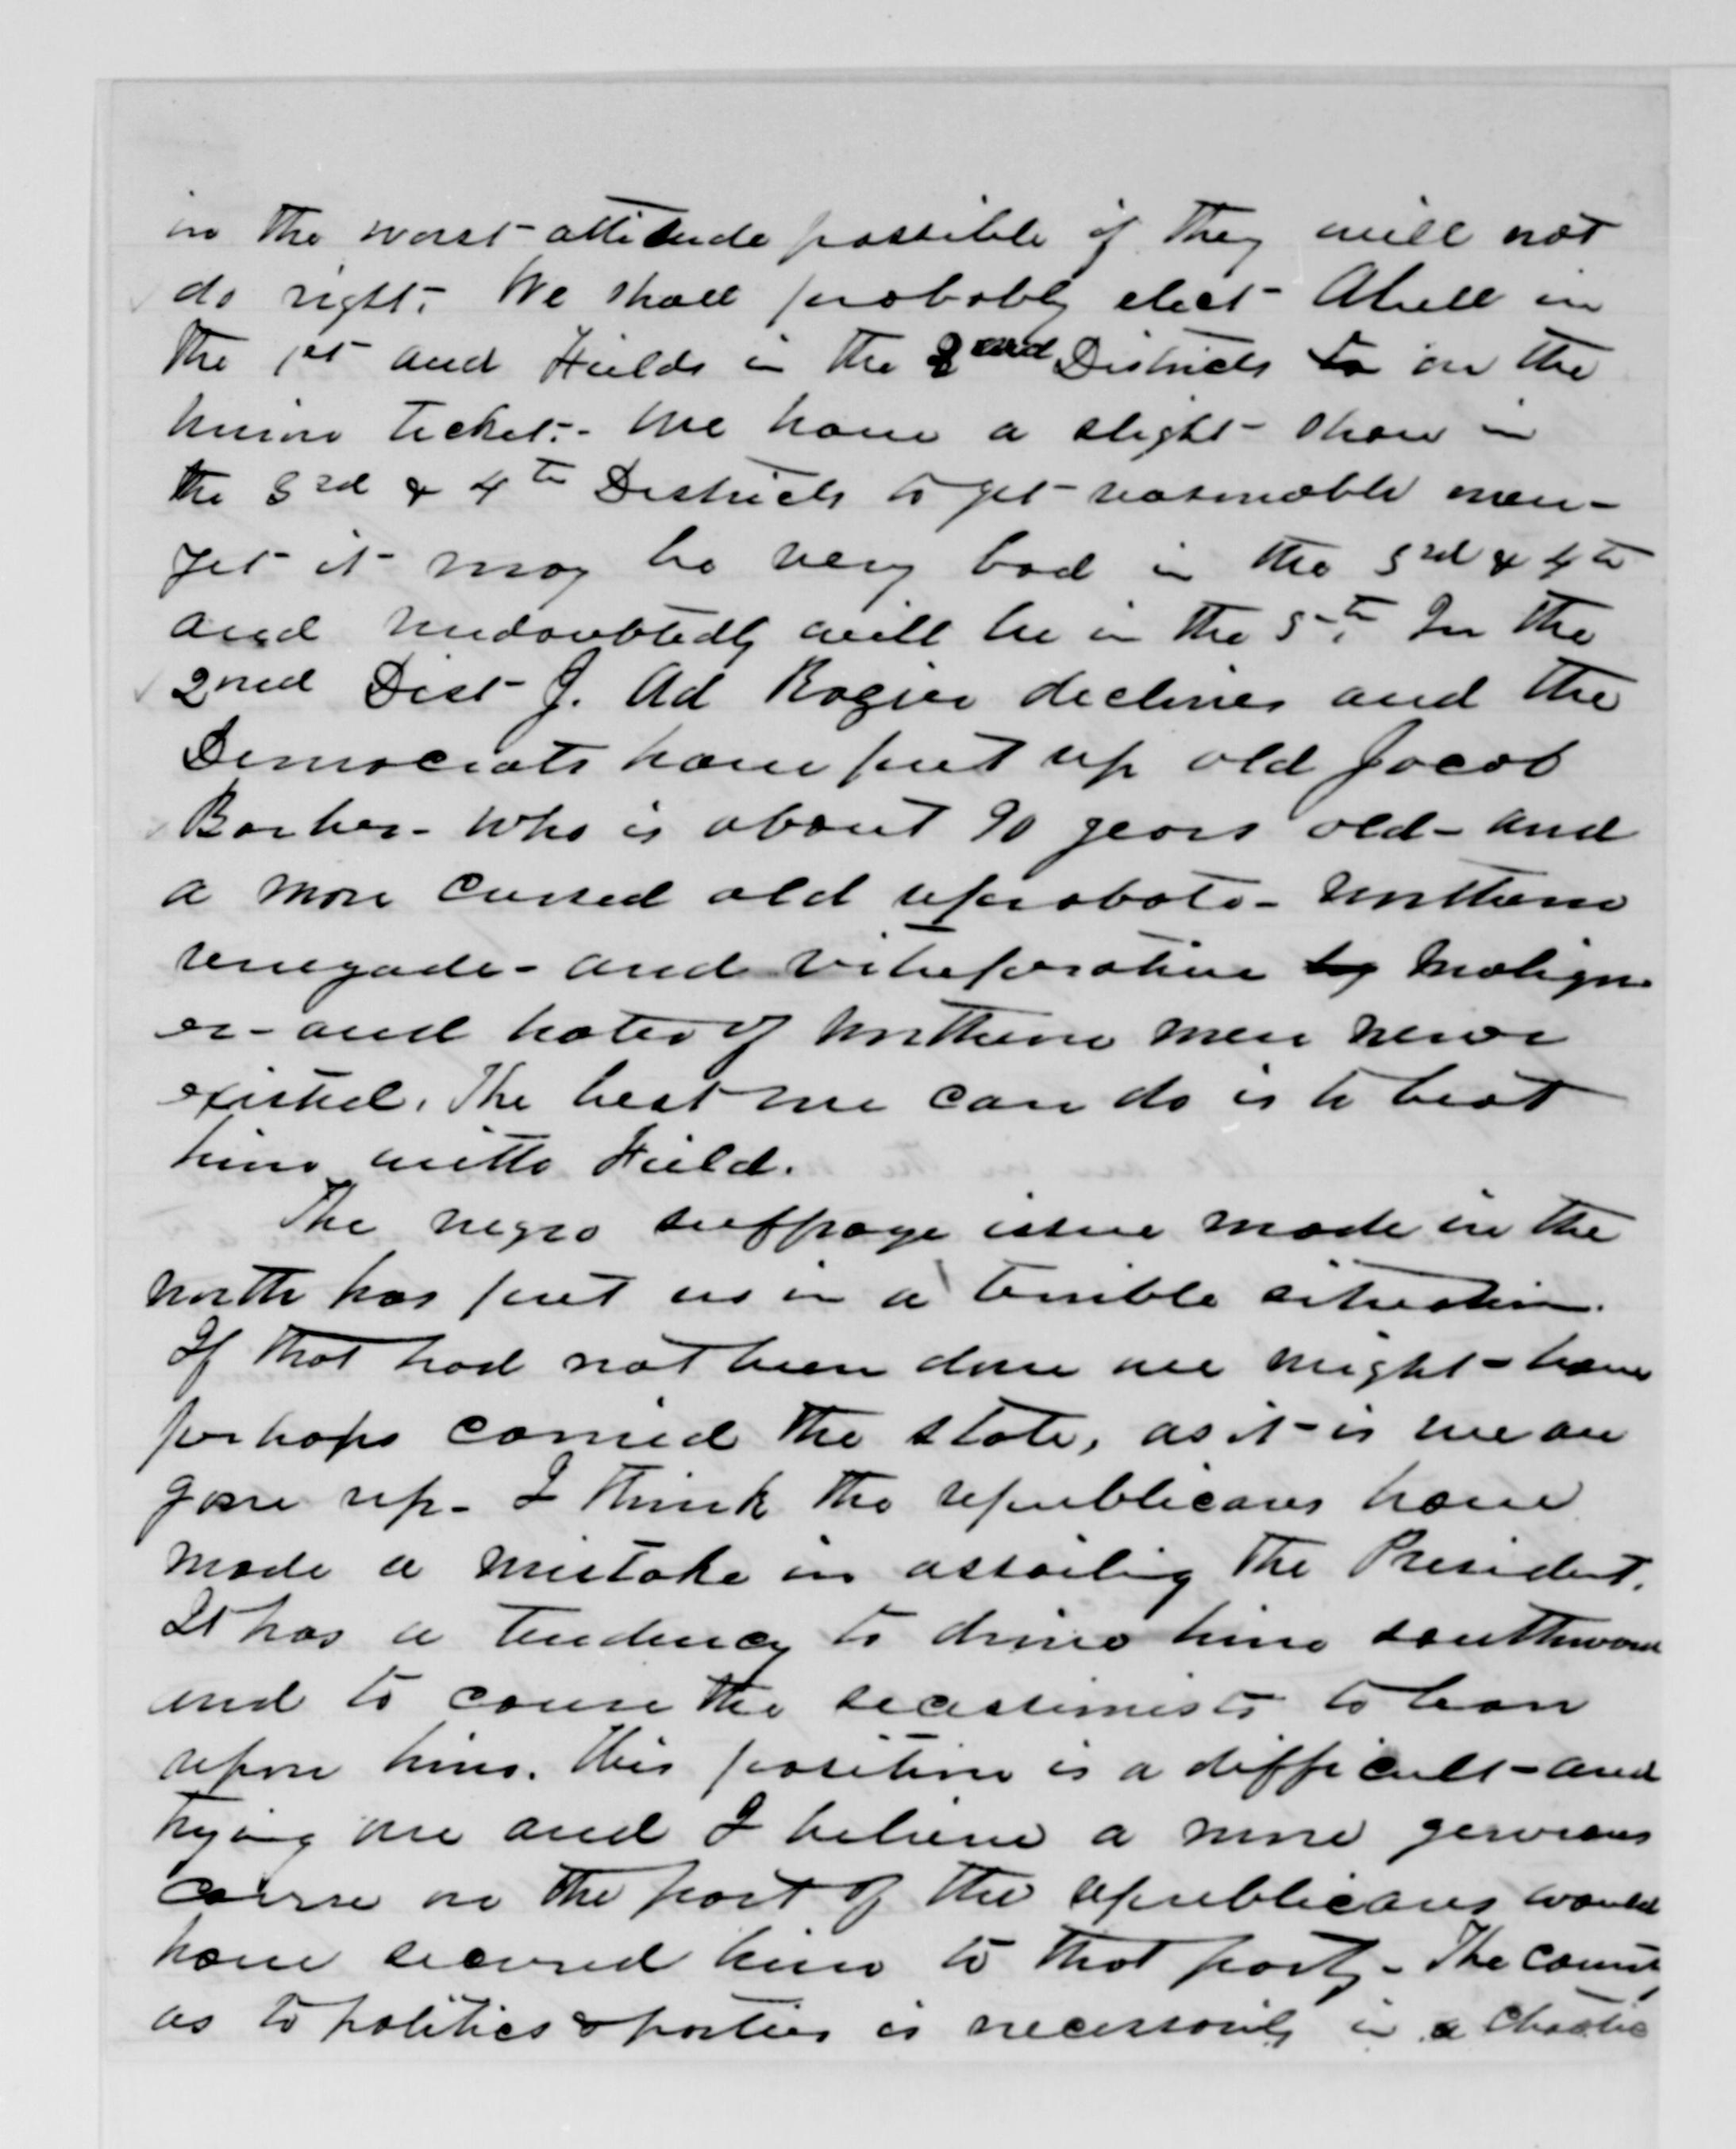 in the worst attitude possible if they will not
do right. We shall probably elect Abell in
the 1st and Fields in the 2nd Districts to on the
union ticket. We have a slight show in
the 3rd & 4th Districts to get reasonable men-
yet it may be very bad in the 3rd & 4th
and undoubtedly will be in the 5th. In the
2nd Dist J. Ad Rozier declines and the
Democrats have put up old Jacob
Barker- who is about 90 years old- and
a more cursed old reprobate- northern
renegade- and vituperative by malign
er- and hater of northern men never
existed. The best we can do is to beat
him with Field.
The negro suffrage issue made in the
north has put us in a terrible situation.
If that had not been done we might have
perhaps carried the state, as it is we are
gone up- I think the republicans have
made a mistake in assailing the President.
It has a tendency to drive him southward
and to cause the secessionists to lean
upon him. His position is a difficult and
trying one and I believe a more generous
course on the part of the republicans would
have secured him to that party- The
as to politics & parties is necessarily in a chaotic